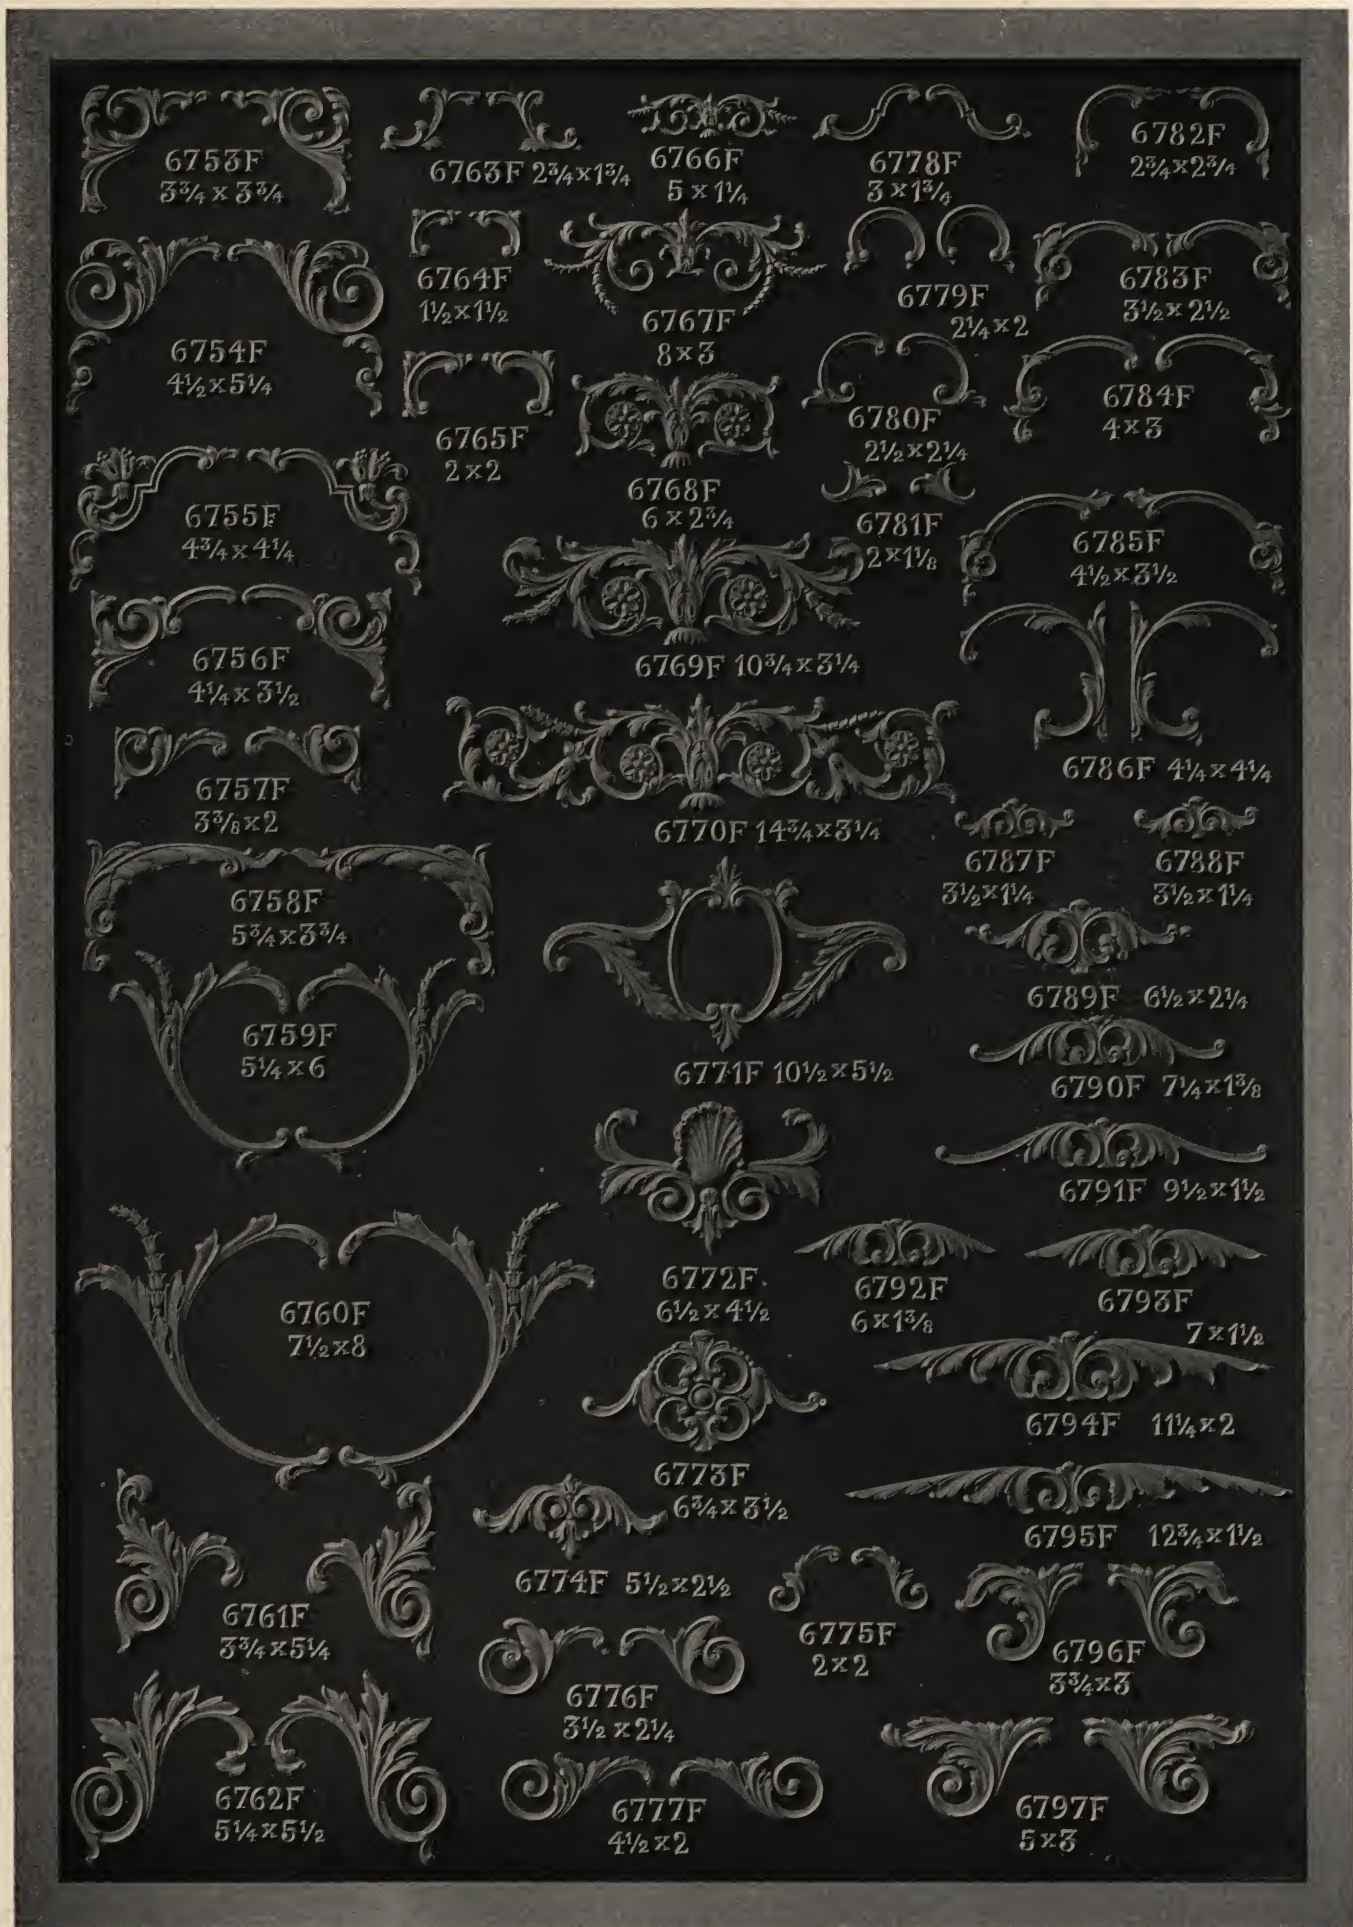 6753F
3¾ x 3¾
6754F
4½x5¼
6755F
4¾x4¼
6756F
4¼x3½
6757F
3⅜x2
6758F
5¾x3¾
6759F
5¼x6
6760F
7½x8
6761F
3¾x5¼
6762F
5¼x5½
6763F 2¾x1¾
6764F
1½x1½
6765F
2x2
6766F
5 x 1¼
6767F
8x3
6768F
6 x 2¾
6769F 10¾x3¼
6770F 14¾x3¼
6771F 10½x5½
6772F
6½x4½
6773F
6¾x3½
6774F 5½x2½
6775F
2x2
6776F
3½ x2¼
6777F
4½x2
6778F
3 x1¾
6779F
2¼x2
6780F
2½x2¼
6781F
2x1⅛
6782F
2¾x2¾
6783F
3½x2½
6784F
4x3
6785F
4½x3½
6786F 4¼x4¼
6787F
3½x1¼
6788F
3½x1¼
6789F 6½x2¼
6790F 7¼x1⅜
6791F 9½x1½
6792F
6x1⅜
6793F
7x1½
6794F 11¼x2
6795F 12¾x1½
6796F
3¾x3
6797F
5x3